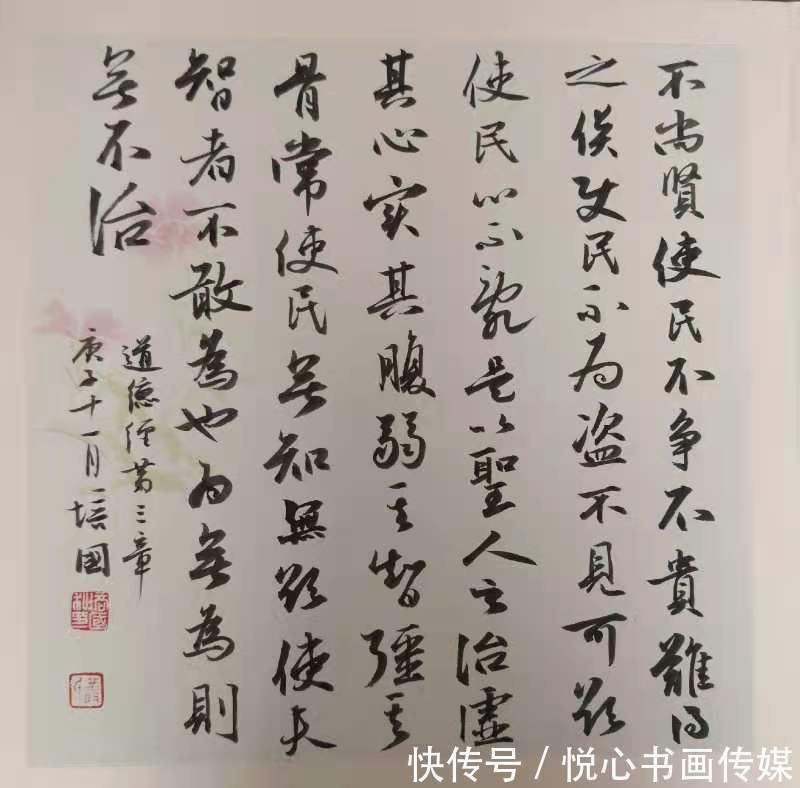 不尚賢使民不争不貴難得
之貨使民不为盗不見可欲
使民心不亂是以聖人之治虛
其心实其腹弱其智彊其
骨常使民無知無欲使夫
智者不敢為也为無為則
無不治
道德经第三章
庚子十一月培國
快传号 / 悦心书画传媒